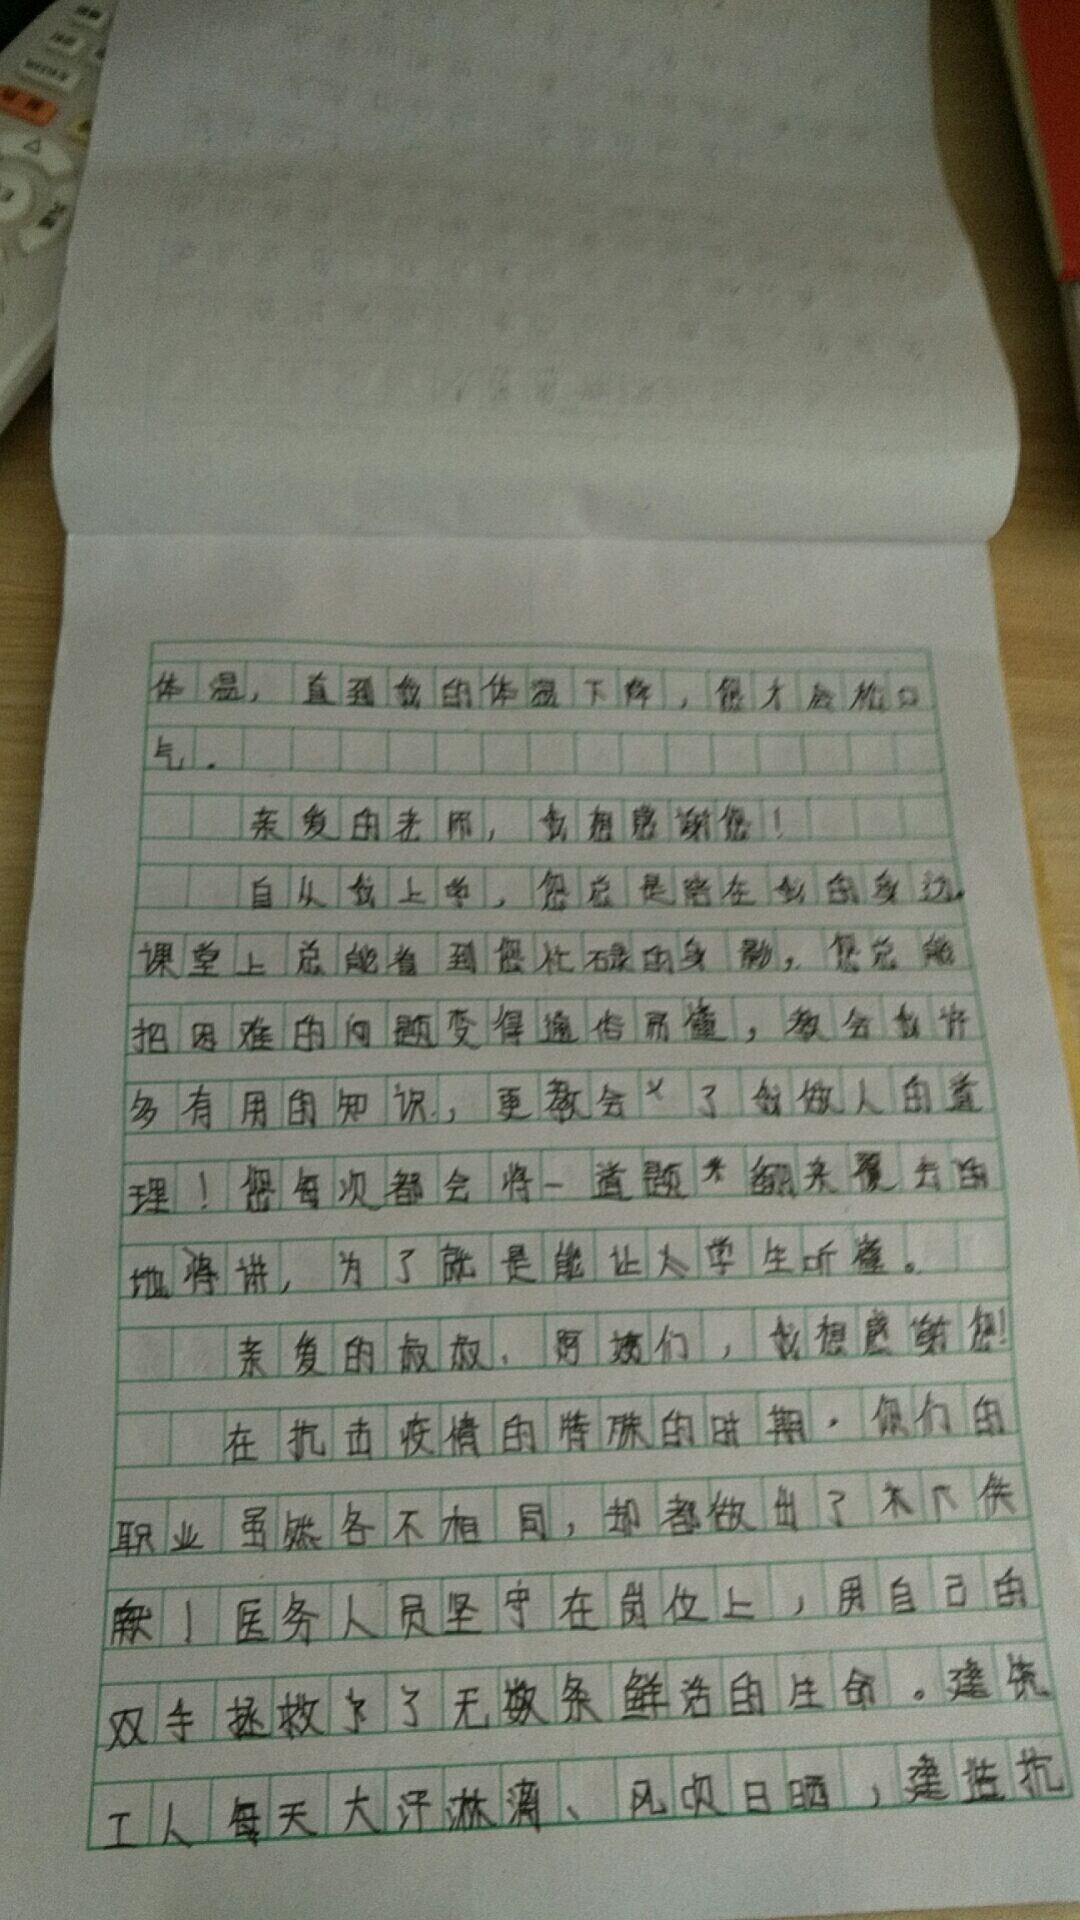 体温，直到我的体温下降，您才会松口
气。
亲爱的老师，我想感谢您！
自从我上学，您总是陪在我的身边。
课堂上总能看到您忙碌的身影，您总能
把困难的问题变得通俗而懂，教会我许
多有用的知识，更教会了我做人的道
理！您每次都会将一道题翻来覆去的
地将讲，为了就是能让学生听懂。
亲爱的叔叔、阿姨们，我想感谢您！
在抗击疫情的特殊的时期，你们的
职业虽然各不相同，却都做出了不
献！医务人员坚守在岗位上，用自己的
双手拯救了无数条鲜活的生命。建筑
工人每天大汗淋漓、风吹日晒，建造抗